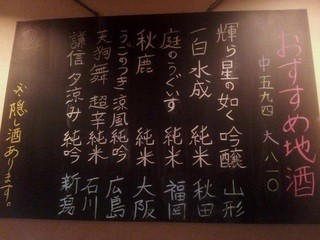 おすすめ地酒
中 五九四 大 八一〇
輝ら星の如く 吟醸 山形
一白水成 純米 秋田
庭のうぐいす 純米 福岡
秋鹿 純米 大阪
うごのつき 涼風純吟 広島
天狗舞 超辛純米 石川
謙信 夕涼み 純吟 新潟
隠し酒あります。